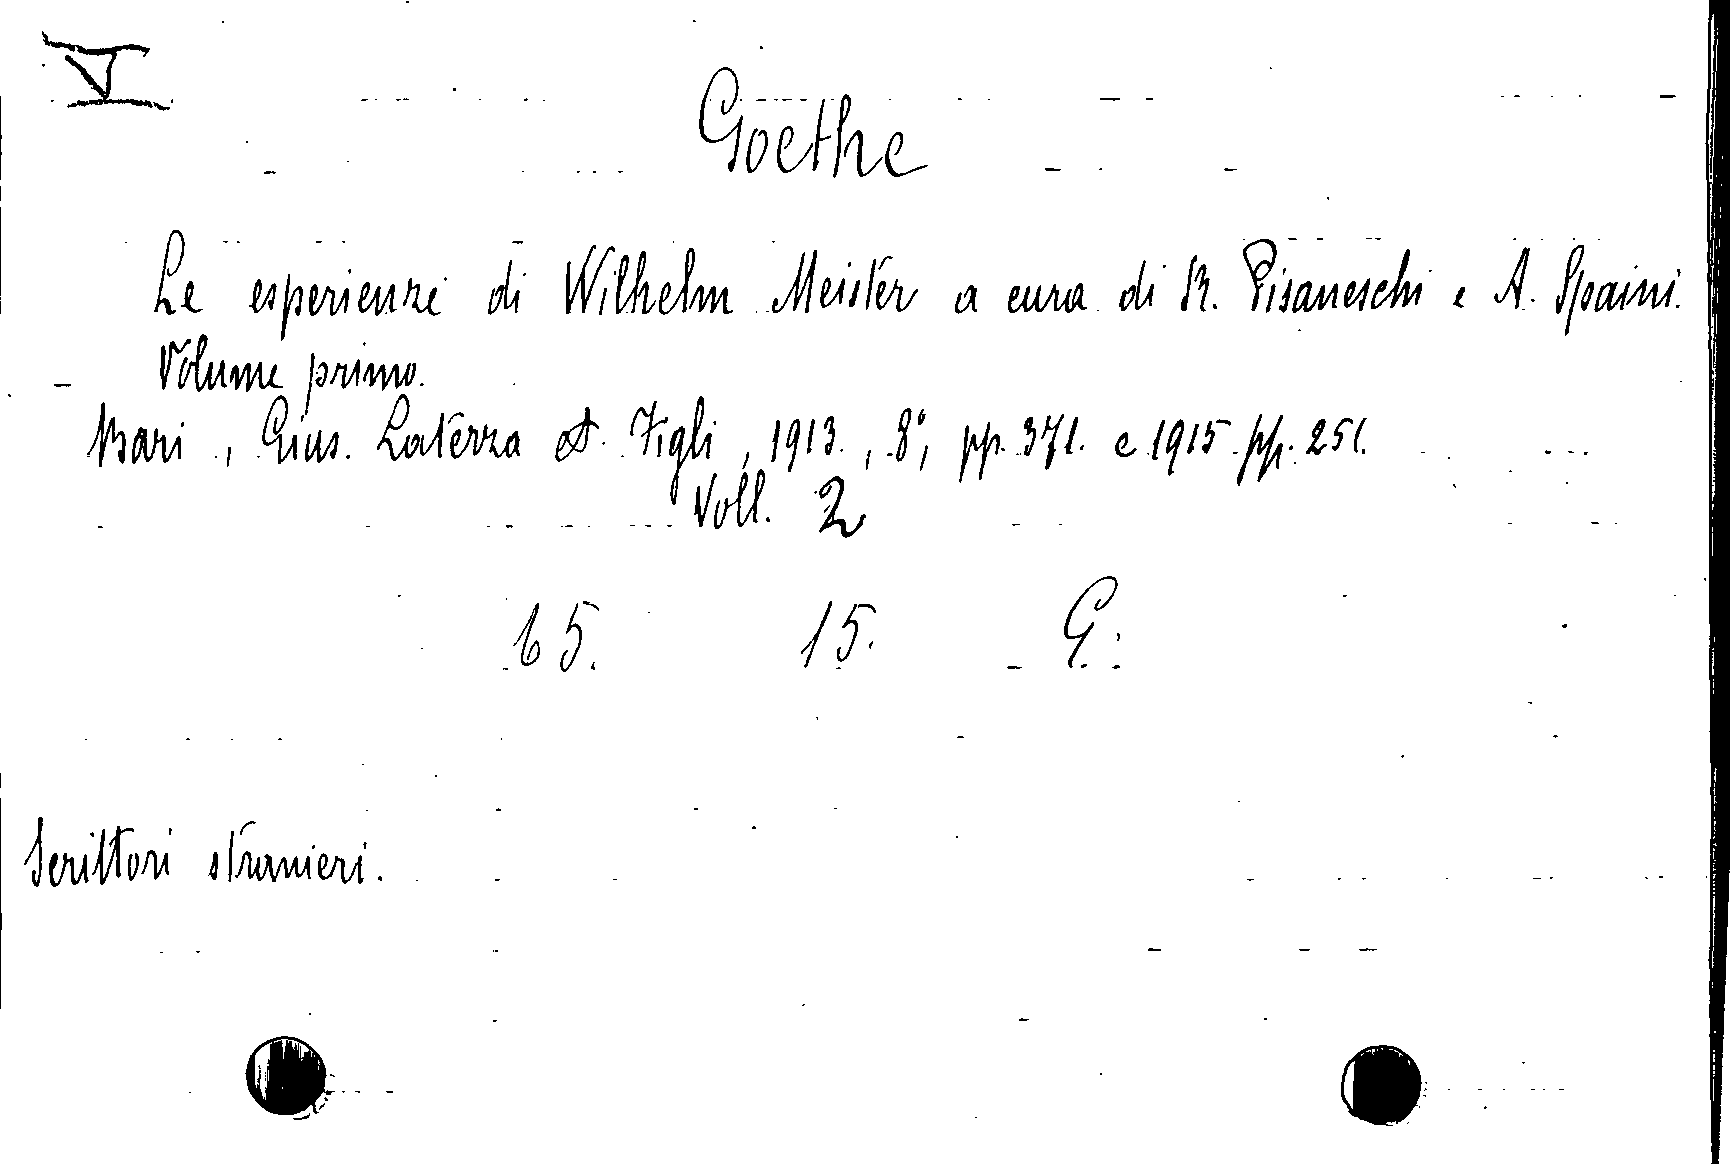 V
Goethe
Le esperienze di Wilhelm Meister a cura di R. Pisaneschi e A. Spaini.
Volume primo.
Bari, Gius. Laterza et Figli, 1913., 8°, pp. 371. e 1915 pp. 251.
Voll. 2
65. 15. G.
Scrittori stranieri.